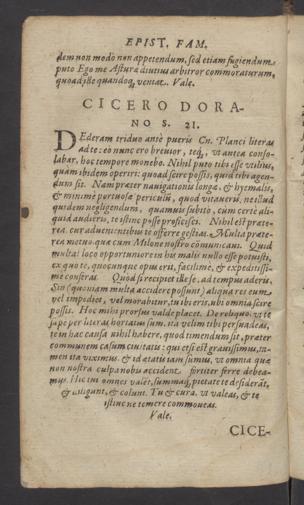 EPIST. FAM.
dem non modò non appetendum, sed etiam fugiendum
puto Ego me Asturæ diutius arbitror commoraturum,
quoad ille quandoq; veniat. Vale.
CICERO DORA-
NO S. 21.
DEderam triduo antè pueris Cn. Planci literas
ad te: eo nunc ero breuior, teq;, vt antea conso-
labar, hoc tempore monebo. Nihil puto tibi esse vtilius,
quàm ibidem operiri: quoad scire possis, quid tibi agen-
dum sit. Nam præter nauigationis longæ, & hyemalis,
& minimè portuosæ periculũ, quod vitaueris, ne illud
quidem negligendum, quamuis subitò, cùm certè ali-
quid audieris, te istinc posse proficisci. Nihil est præte-
rea, cur aduenientibus te offerre gestias. Multa præte-
rea metuo, quæ cum Milone nostro cõmunicaui. Quid
multa? loco opportuniore in his malis nullo esse potuisti,
ex quo te, quocunque opus erit, facillimè, & expeditissi-
mè conferas. Quod si recipiet ille se, ad tempus aderis.
Sin (quoniam multa accidere possunt) aliqua res eum,
vel impediet, vel morabitur, tu ibi eris, vbi omnia scire
possis. Hoc mihi prorsus valde placet. De reliquo, vt te
sæpe per literas hortatus sum, ita velim tibi persuadeas,
te in hac causa nihil habere, quod timendum sit, præter
communem casum ciuitatis: qui etsi est grauissimus, ta-
men ita viximus, & id ætatis iam sumus, vt omnia quæ
non nostra culpa nobis accidant fortiter ferre debea-
mus. Hic tui omnes valẽt, summaq; pietate te desiderãt,
& diligunt, & colunt. Tu & cura, vt valeas, & te
istinc ne temere commoueas.
Vale.
CICE-